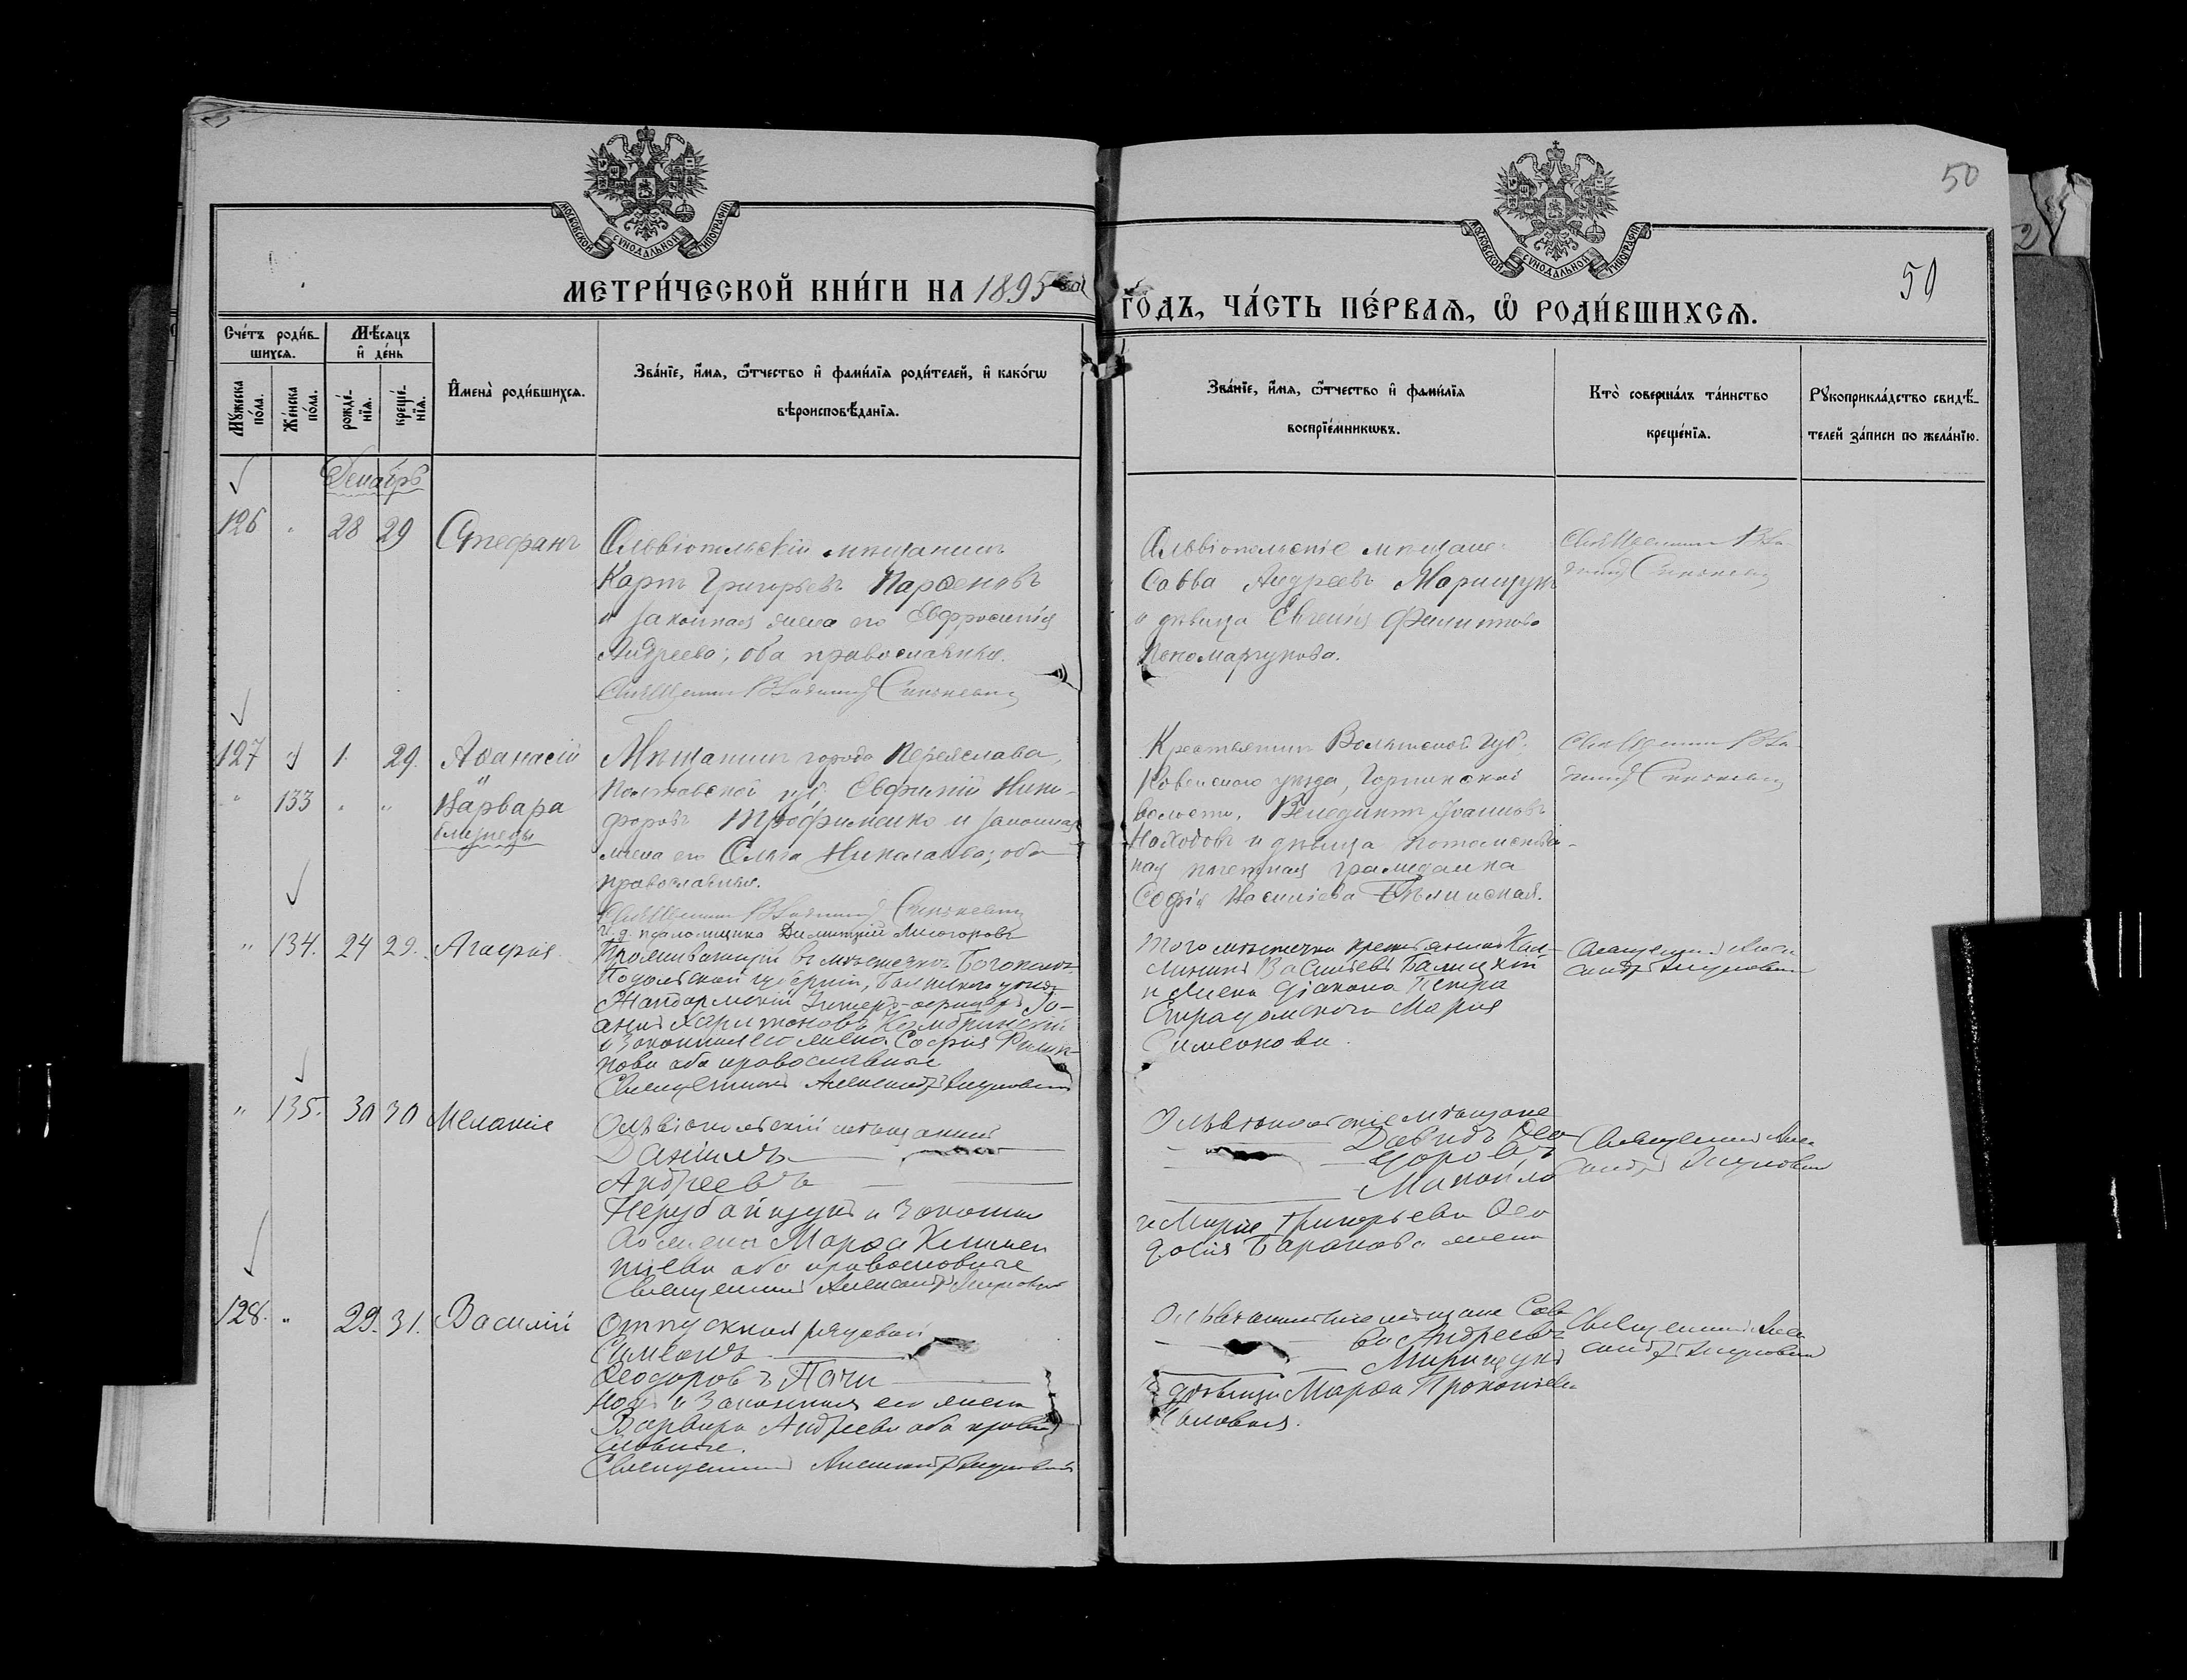 50
2
50
МОСКОВСКОЙ СѴНОДАЛЬНОЙ ТИПОГРАФІИ
МОСКОВСКОЙ СѴНОДАЛЬНОЙ ТИПОГРАФІИ
МЕТРИ́ЧЕСКОЙ КНИ́ГИ НА 1895
ГОДЪ, ЧА́СТЬ ПЕ́РВАЯ, Ѡ РОДИ́ВШИХСЯ.
Сче́тъ роди́в-
шихся.
Мѣ́сяцъ
и де́нь
Мꙋ́жеска по́ла.
Же́нска по́ла.
рожде́-
нїя.
креще́-
нїя.
Имена̀ роди́вшихся.
Зва́нїе, и́мя, ѻ҆́тчество и фами́лїя роди́телей, и како́гѡ
вѣроисповѣ́данїя.
Зва́нїе, и́мя, ѻ҆́тчество и фами́лїя
воспрїе́мникѡвъ.
Кто̀ соверша́лъ та́инство
креще́нїя.
Рꙋкоприкла́дство свидѣ́-
телей за́писи по жела́нїю.
Декабрь
126 28 29 Стефанъ
Ольвіопольскій мѣщанинъ
Карпъ Григорьевъ Парѳеновъ
и законная жена его Евфросинія
Андреева; оба православные.
Священникъ Владимір
Ольвіопольскіе мѣщане:
Савва Андреевъ Марищукъ
и дѣвица Евгенія Филиппова
Пономарчукова.
Священникъ Вла-
димір
127 1. 29. Аѳанасій
" 133 " " Варвара
близнецы
Мѣщанинъ города Переяслава,
Полтавской губ. Евфимій Ники-
форовъ Трофименко и законная
жена его Ольга Николаева; оба
православные.
Священникъ Владимір
И. д. псаломщика Димитрій
Крестьянинъ Волынской губ.
Ковельскаго уѣзда,
волости, Венедиктъ Іоанновъ
и дѣвица потомствен-
ная почетная гражданка
Софія Васильева Бѣлинская.
Священникъ Вла-
димір
" 134. 24 29. Агафія
Проживающій въ мѣстечкѣ Богополѣ
Подольской губерніи, Балтскаго уѣзда
Жандармскій Унтеръ-офицеръ Іо-
аннъ Харитоновъ
и законная его жена Софія Филип-
пова оба православные
Священникъ Александръ
Того мѣстечка крестьянинъ
Васильевъ Балицкій
и жена діакона Петра
Марія
Симеонова.
Священникъ Алек-
сандръ
" 135. 30 30 Меланія
Ольвіопольскій мѣщанинъ
Даніилъ
Андреевъ
Нерубайщукъ и законна
его жена Марѳа Климен
тіева оба православные
Священникъ Александръ
Ольвіопольскіе мѣщане
Давидъ Ѳео-
доровъ
Манойло
и Марія Григорьева Ѳео
досія Баранова жена
Священникъ Алек-
сандръ
128. " 29. 31. Василій
Отпускной рядовой
Симеонъ
Ѳеодоровъ
и законная его жена
Варвара Андреева оба право
славные.
Священникъ Александръ
Ольвіопольскіе мѣщане Сав-
ва Андреевъ
Марищукъ
дѣвица Марѳа Прокопіева
Священникъ Алек-
сандръ